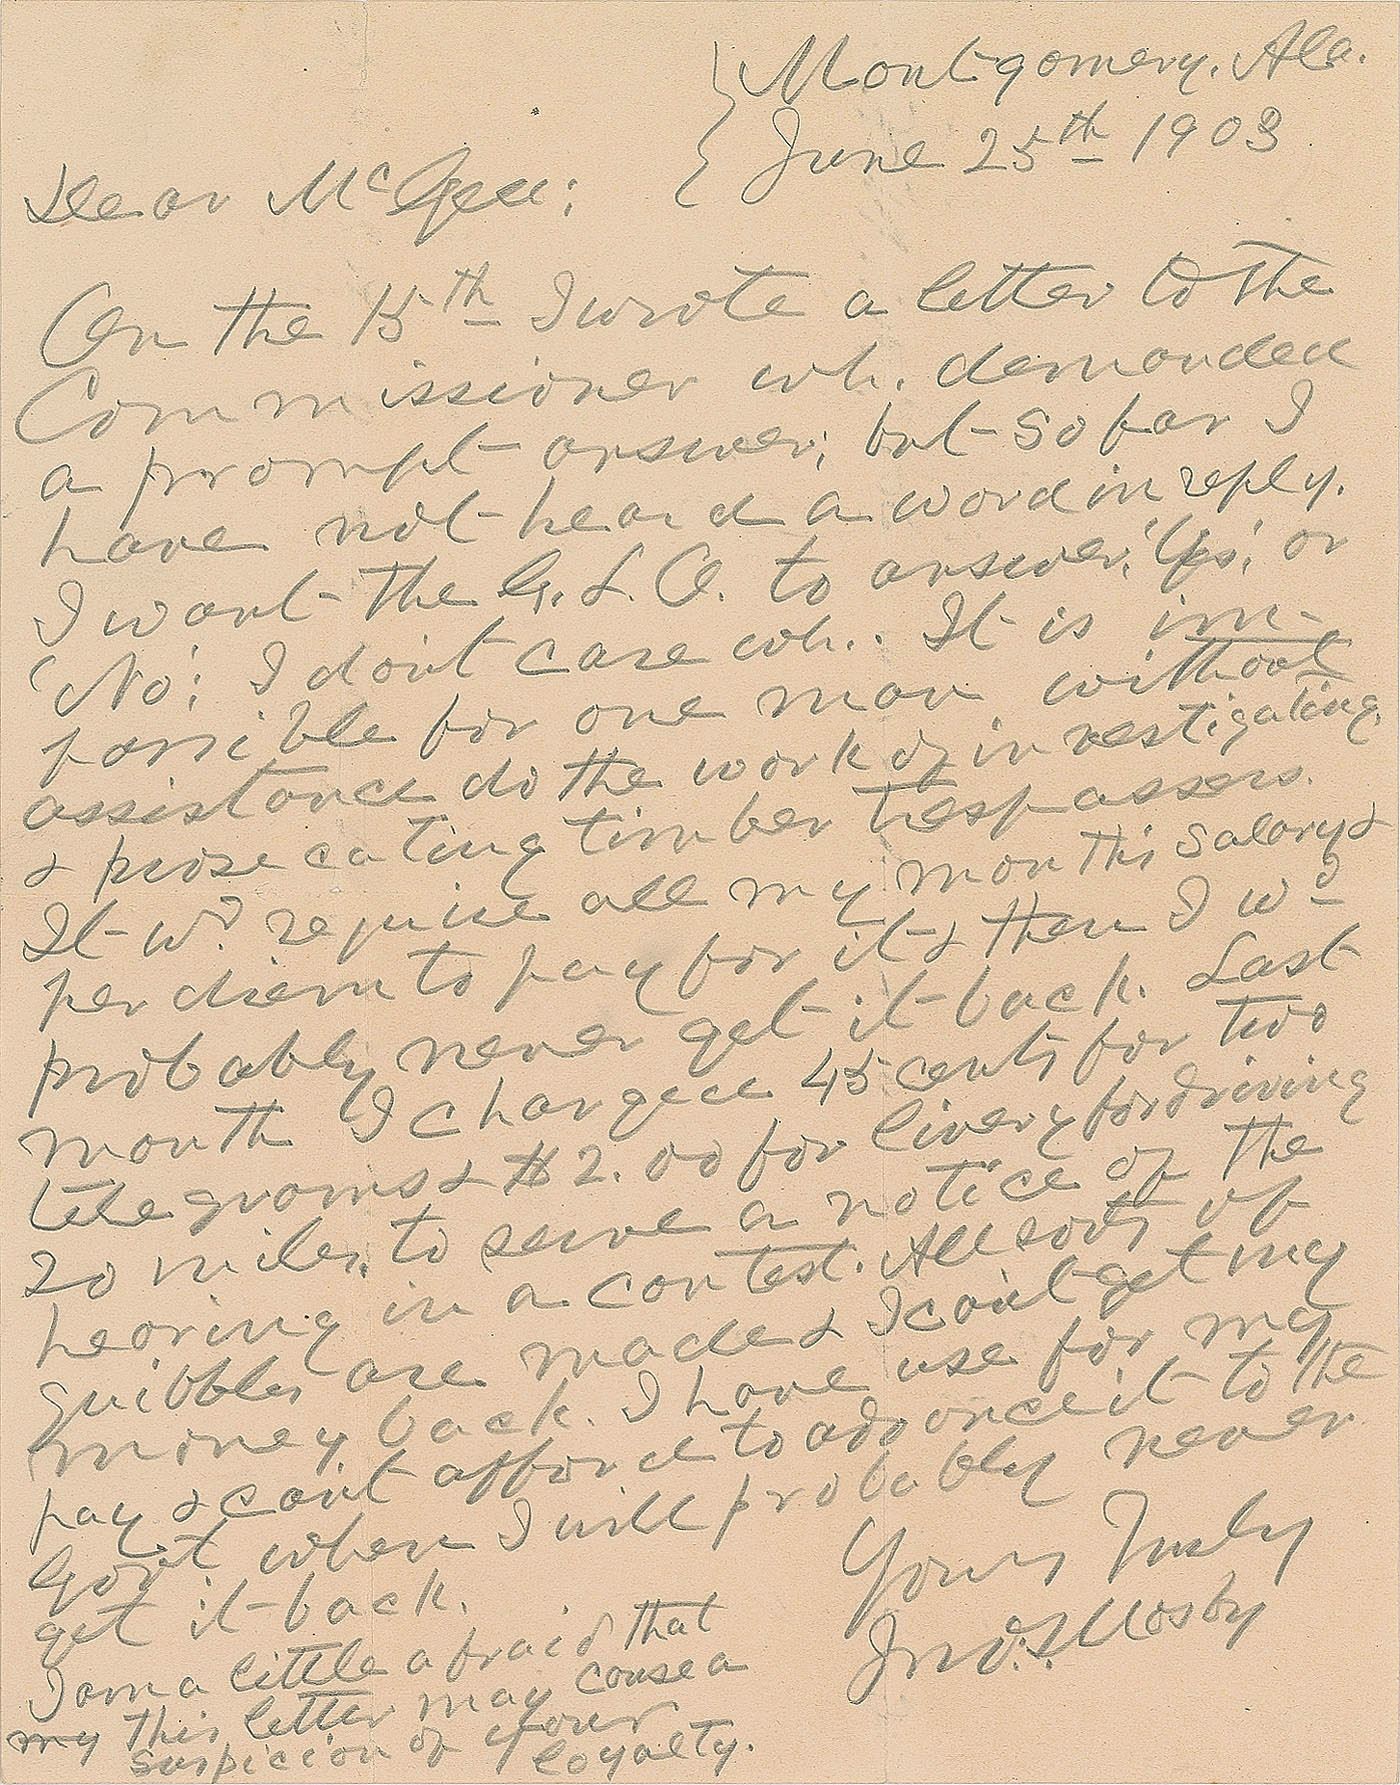 Montgomery, Ala.
June 25th 1903
Dear McGee:
On the 15th I wrote a letter to the
Commissioner wh. demanded
a prompt answer; but so far I
have not heard a word in reply.
I want the G.L.O. to answer, 'Yes', or
'No': I don't care wh.. It is im-
possible for one man without
assistance do the work of investigating
& prosecuting timber trespassers.
It wd. require all my months salary &
per diem to pay for it & then I wd
probably never get it back. Last
month I charged 45 cents for two
telegrams & $2.00 for livery for driving
20 miles, to serve a notice of the
hearing in a contest. All sorts of
quibbles are made & I can't get my
money back. I have use for my
pay & can't afford to advance it to the
Gov't when I will probably never
get it back.
Yours Truly
Jno. S. Mosby
I am a little afraid that
my this letter may cause a
suspicion of your loyalty.